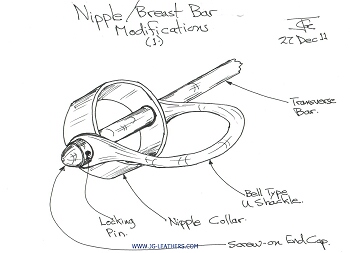 Nipple/Breast Bar
Modifications
(1)
27 Dec 11
Transverse
Bar.
Bell Type
U Shackle.
Locking
Pin.
Nipple Collar.
Screw-on End Cap.
WWW.JG-LEATHERS.COM